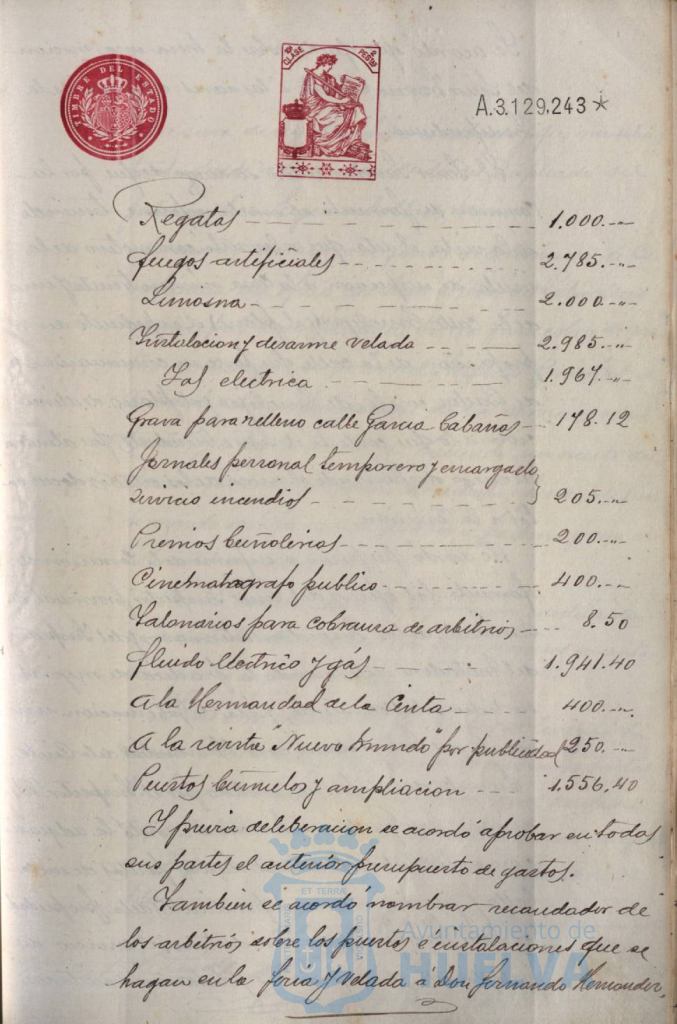 TIMBRE DEL ESTADO
10ª CLASE 2 PESTAS
A.3.129.243*
Regatas 1.000.-"-
fuegos artificiales 2.785.-"-
Limosna 2.000.-"-
Instalacion y desarme velada 2.985.-"-
electrica 1.967.-"-
Grava para relleno calle Garcia Cabaños 178.12
Jornales personal temporero y encargado
servicio incendios 205.-"-
Premios buñolerias 200.-"-
Cinematografo publico 400.-"-
Talonarios para cobranza de arbitrios 8.50
fluido electrico y gás 1.941.40
A la Hermandad de la Cinta 400.-"-
A la revista "Nuevo Mundo" por publicidad 250.-"-
Puestos buñuelos y ampliacion 1.556,40
Y previa deliberacion se acordó aprobar en todas
sus partes el anterior presupuesto de gastos.
Tambien se acordó nombrar recaudador de
los arbitrios sobre los puestos é instalaciones que se
hagan en la feria y velada á Don Fernando Hernandez,
ET TERRA
Ayuntamiento de
HUELVA